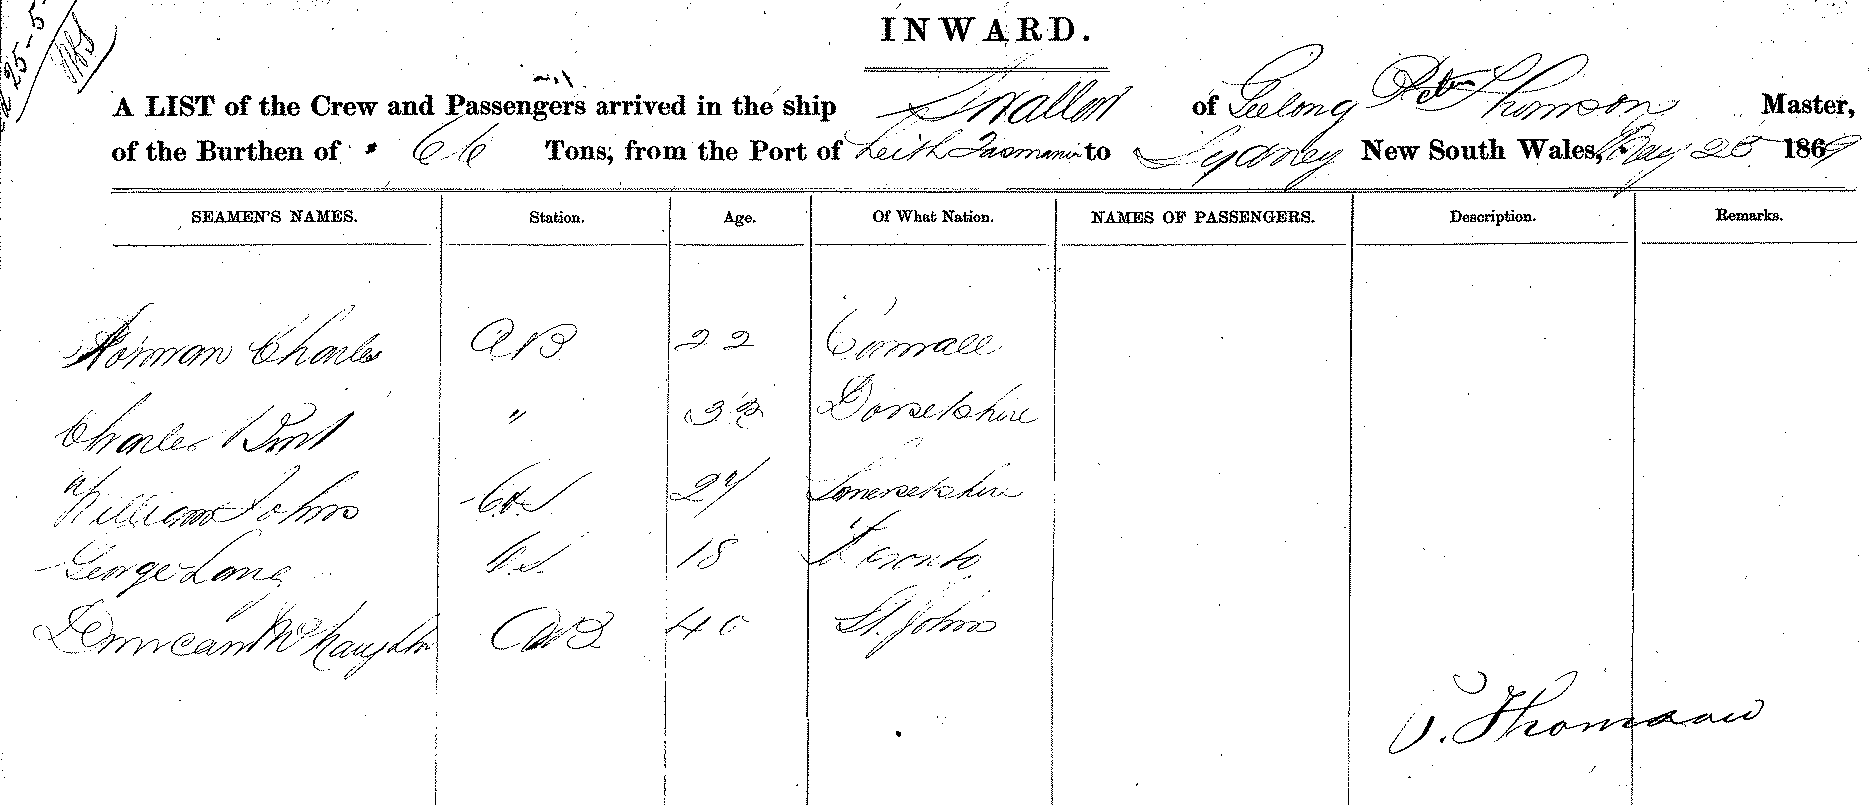 25-5
INWARD.
A LIST of the Crew and Passengers arrived in the ship Swallow of Geelong Thomson Master,
of the Burthen of 66 Tons, from the Port of Leith Tasmania to Sydney New South Wales, May 25 1869
SEAMEN'S NAMES. Station. Age. Of What Nation. NAMES OF PASSENGERS. Description. Remarks.
Norman Charles AB 22 Cornwall
Charles " 33 Dorsetshire
William Johns 27 Somersetshire
George Lang O.S. 18 Toronto
Duncan McNaughton AB 40 St. Johns
P. Thomson